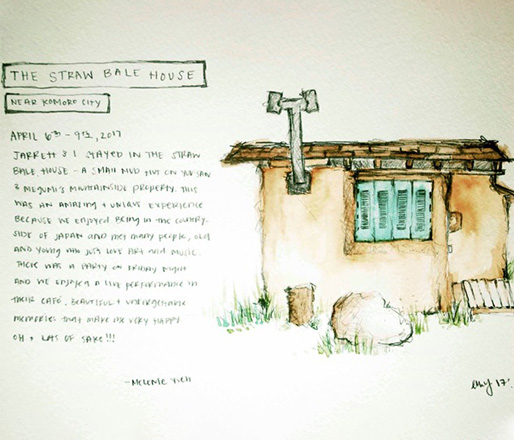 THE STRAW BALE HOUSE
NEAR KOMORO CITY
APRIL 6TH - 9TH, 2017
JARRETT & I STAYED IN THE STRAW
BALE HOUSE - A SMALL MUD HUT ON YUKSAN
& MEGUMI'S MOUNTAINSIDE PROPERTY. THIS
WAS AN AMAZING + UNIQUE EXPERIENCE
BECAUSE WE ENJOYED BEING IN THE COUNTRY-
SIDE OF JAPAN AND MET MANY PEOPLE, OLD
AND YOUNG WHO JUST LOVE ART AND MUSIC.
THERE WAS A PARTY ON FRIDAY NIGHT
AND WE ENJOYED A LIVE PERFORMANCE IN
THEIR CAFÉ. BEAUTIFUL + UNFORGETTABLE
MEMORIES THAT MAKE ME VERY HAPPY
OH + LOTS OF SAKE!!!
17'